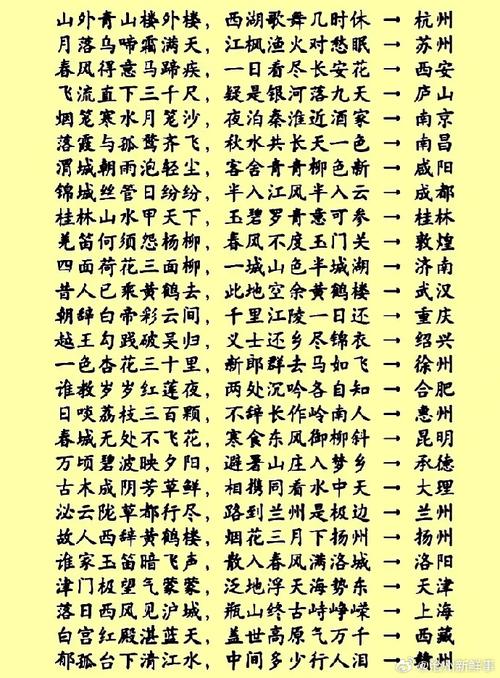 山外青山楼外楼，西湖歌舞几时休 → 杭州
月落乌啼霜满天，江枫渔火对愁眠 → 苏州
春风得意马蹄疾，一日看尽长安花 → 西安
飞流直下三千尺，疑是银河落九天 → 庐山
烟笼寒水月笼沙，夜泊秦淮近酒家 → 南京
落霞与孤鹜齐飞，秋水共长天一色 → 南昌
渭城朝雨浥轻尘，客舍青青柳色新 → 咸阳
锦城丝管日纷纷，半入江风半入云 → 成都
桂林山水甲天下，玉碧罗青意可参 → 桂林
羌笛何须怨杨柳，春风不度玉门关 → 敦煌
四面荷花三面柳，一城山色半城湖 → 济南
昔人已乘黄鹤去，此地空余黄鹤楼 → 武汉
朝辞白帝彩云间，千里江陵一日还 → 重庆
越王勾践破吴归，义士还乡尽锦衣 → 绍兴
一色杏花三十里，新郎群去马如飞 → 徐州
谁教岁岁红莲夜，两处沉吟各自知 → 合肥
日啖荔枝三百颗，不辞长作岭南人 → 惠州
春城无处不飞花，寒食东风御柳斜 → 昆明
万顷碧波映夕阳，避暑山庄入梦乡 → 承德
古木成阴芳草鲜，相携同看水中天 → 大理
泌云陇草都行尽，路到兰州是极边 → 兰州
故人西辞黄鹤楼，烟花三月下扬州 → 扬州
谁家玉笛暗飞声，散入春风满洛城 → 洛阳
津门极望气蒙蒙，泛地浮天海势东 → 天津
落日西风见沪城，瓶山终古峙峥嵘 → 上海
白宫红殿湛蓝天，盖世高原气万千 → 西藏
郁孤台下清江水，中间多少行人泪 → 赣州